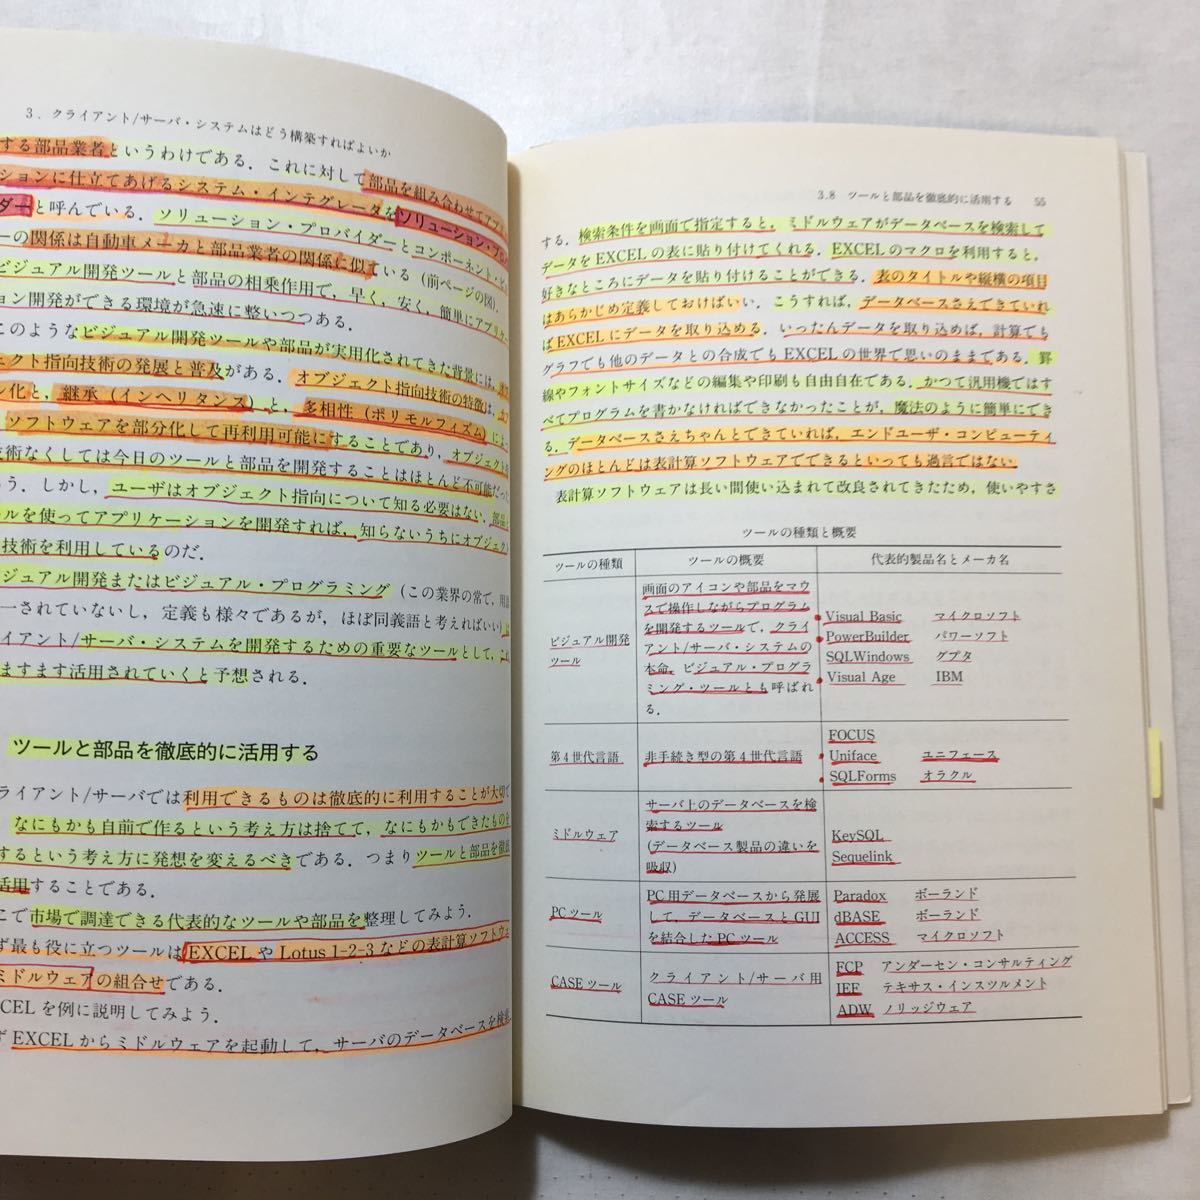 3. クライアント/サーバ・システムはどう構築すればよいか
する部品業者というわけである．これに対して部品を組み合わせてアプ
ーションに仕立てあげるシステム・インテグレータをソリューション・プロ
ダーと呼んでいる．ソリューション・プロバイダーとコンポーネント・
ーの関係は自動車メーカと部品業者の関係に似ている（前ページの図）．
ビジュアル開発ツールと部品の相乗作用で，早く，安く，簡単にアプリケー
ョン開発ができる環境が急速に整いつつある．
このようなビジュアル開発ツールや部品が実用化されてきた背景には，
ジェクト指向技術の発展と普及がある．オブジェクト指向技術の特徴は，
ル化と，継承（インヘリタンス）と，多相性（ポリモルフィズム）に
ソフトウェアを部分化して再利用可能にすることであり，オブジェクト
技術なくしては今日のツールと部品を開発することはほとんど不可能だっ
う．しかし，ユーザはオブジェクト指向について知る必要はない．部品
ルを使ってアプリケーションを開発すれば，知らないうちにオブジェク
技術を利用しているのだ．
ジュアル開発またはビジュアル・プログラミング（この業界の常で，用語
一されていないし，定義も様々であるが，ほぼ同義語と考えればいい）
イアント/サーバ・システムを開発するための重要なツールとして，これ
ますます活用されていくと予想される．
ツールと部品を徹底的に活用する
ライアント/サーバでは利用できるものは徹底的に利用することが大切で
なにもかも自前で作るという考え方は捨てて，なにもかもできたものを
するという考え方に発想を変えるべきである．つまりツールと部品を徹底
活用することである．
こで市場で調達できる代表的なツールや部品を整理してみよう．
ず最も役に立つツールはEXCELやLotus 1-2-3などの表計算ソフトウェ
ミドルウェアの組合せである．
XCELを例に説明してみよう．
ず EXCELからミドルウェアを起動して，サーバのデータベースを検索
3.8 ツールと部品を徹底的に活用する 55
する．検索条件を画面で指定すると，ミドルウェアがデータベースを検索して
データをEXCELの表に貼り付けてくれる．EXCELのマクロを利用すると，
好きなところにデータを貼り付けることができる．表のタイトルや縦横の項目
はあらかじめ定義しておけばいい．こうすれば，データベースさえできていれ
ばEXCELにデータを取り込める．いったんデータを取り込めば，計算でも
グラフでも他のデータとの合成でもEXCELの世界で思いのままである．罫
線やフォントサイズなどの編集や印刷も自由自在である．かつて汎用機ではす
べてプログラムを書かなければできなかったことが，魔法のように簡単にでき
る．データベースさえちゃんとできていれば，エンドユーザ・コンピューティ
ングのほとんどは表計算ソフトウェアでできるといっても過言ではない
表計算ソフトウェアは長い間使い込まれて改良されてきたため，使いやすさ
ツールの種類と概要
ツールの種類 ツールの概要 代表的製品名とメーカ名
ビジュアル開発
ツール
画面のアイコンや部品をマウ
スで操作しながらプログラム
を開発するツールで，クライ
アント/サーバ・システムの
本命．ビジュアル・プログラ
ミング・ツールとも呼ばれ
る．
Visual Basic マイクロソフト
PowerBuilder パワーソフト
SQLWindows グプタ
Visual Age IBM
第4世代言語 非手続き型の第4世代言語
FOCUS
Uniface ユニフェース
SQLForms オラクル
ミドルウェア
サーバ上のデータベースを検
索するツール
(データベース製品の違いを
吸収)
KeySQL
Sequelink
PCツール
PC用データベースから発展
して，データベースとGUI
を結合したPCツール
Paradox ボーランド
dBASE ボーランド
ACCESS マイクロソフト
CASEツール
クライアント/サーバ用
CASEツール
FCP アンダーセン・コンサルティング
IEF テキサス・インスツルメント
ADW ノリッジウェア